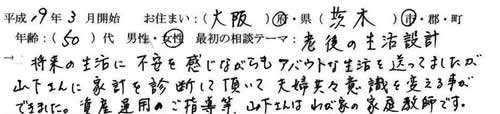 平成19年3月開始 お住まい:(大阪)府・県(茨木)市・郡・町
年齢:(50)代 男性・女性 最初の相談テーマ:老後の生活設計
将来の生活に不安を感じながらもアバウトな生活を送ってましたが
山下さんに家計を診断して頂いて夫婦共々意識を変える事が
できました。資産運用のご指導等、山下さんはわが家の家庭教師です。